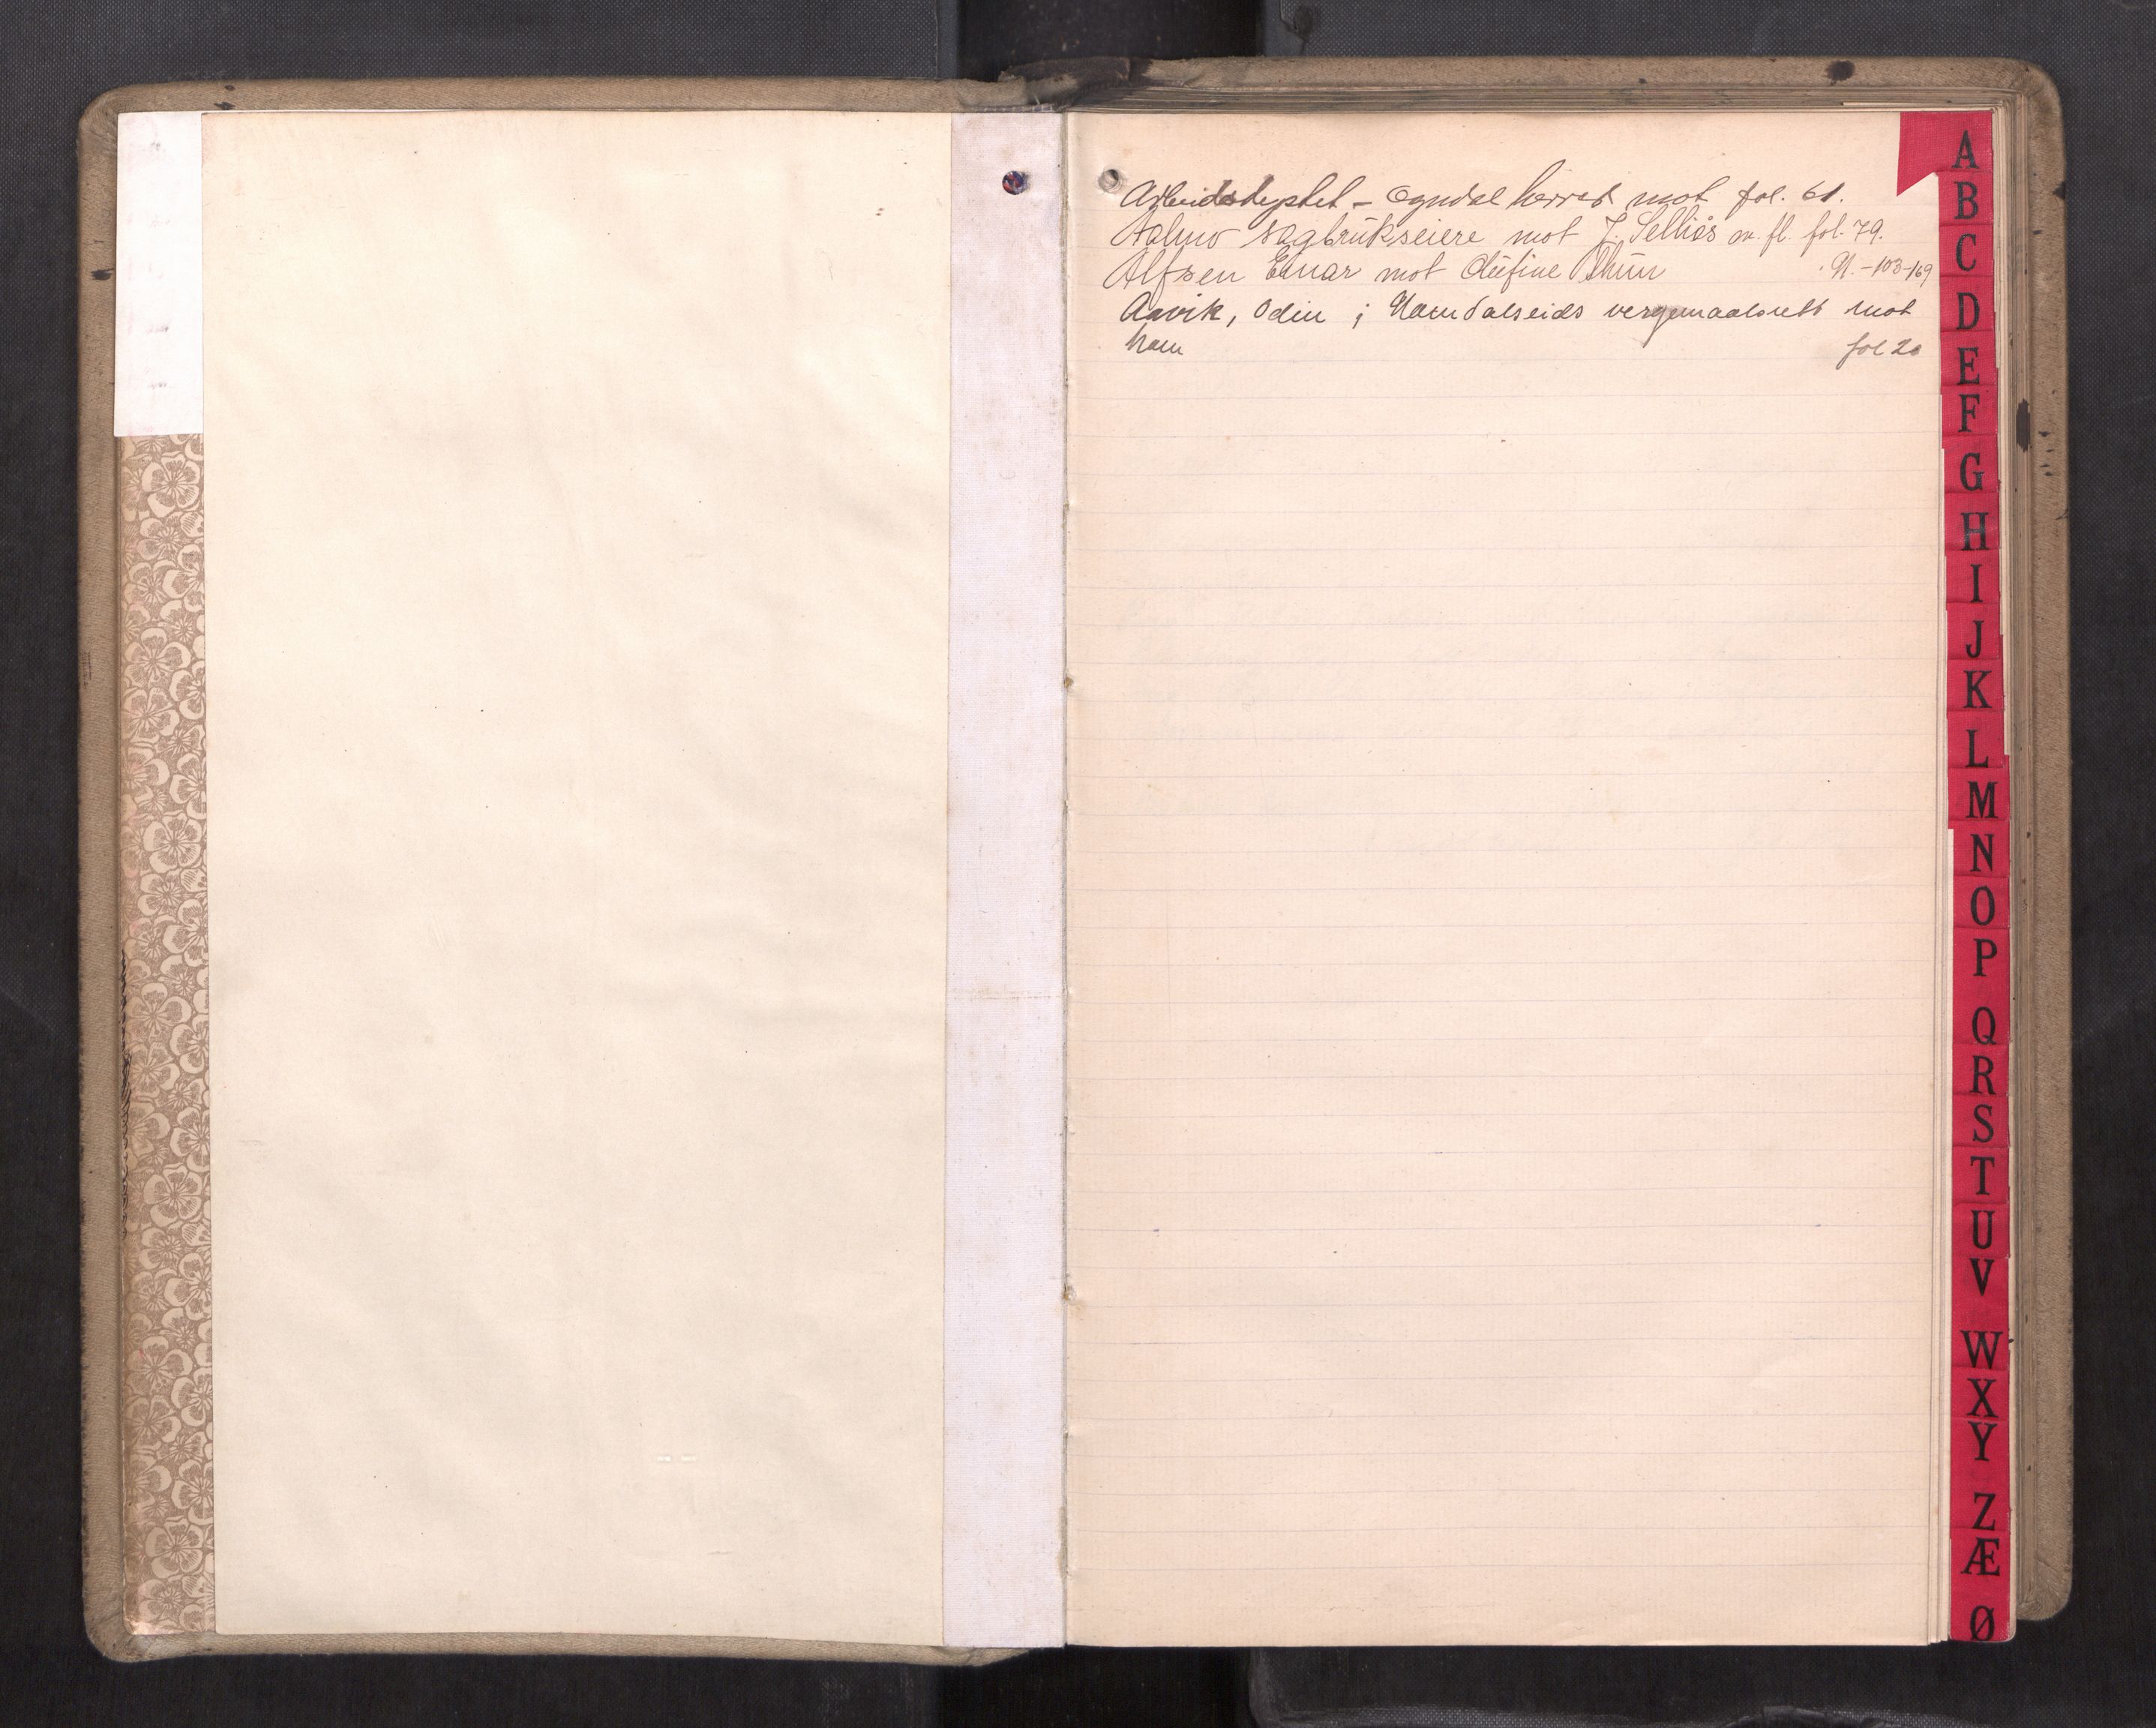 Arbeidsdyktet - Ogndal herred mot fol. 61.
Aalmo sagbrukseiere mot J. Selliås m. fl. fol. 79.
Alfsen Einar mot Olufine Thun 91.-103-169
Aavik, Odin i Namdalseids vergemaalsrett mot
ham fol 20
A
B
C
D
E
F
G
H
I
J
K
L
M
N
O
P
Q
R
S
T
U
V
W
X
Y
Z
Æ
Ø